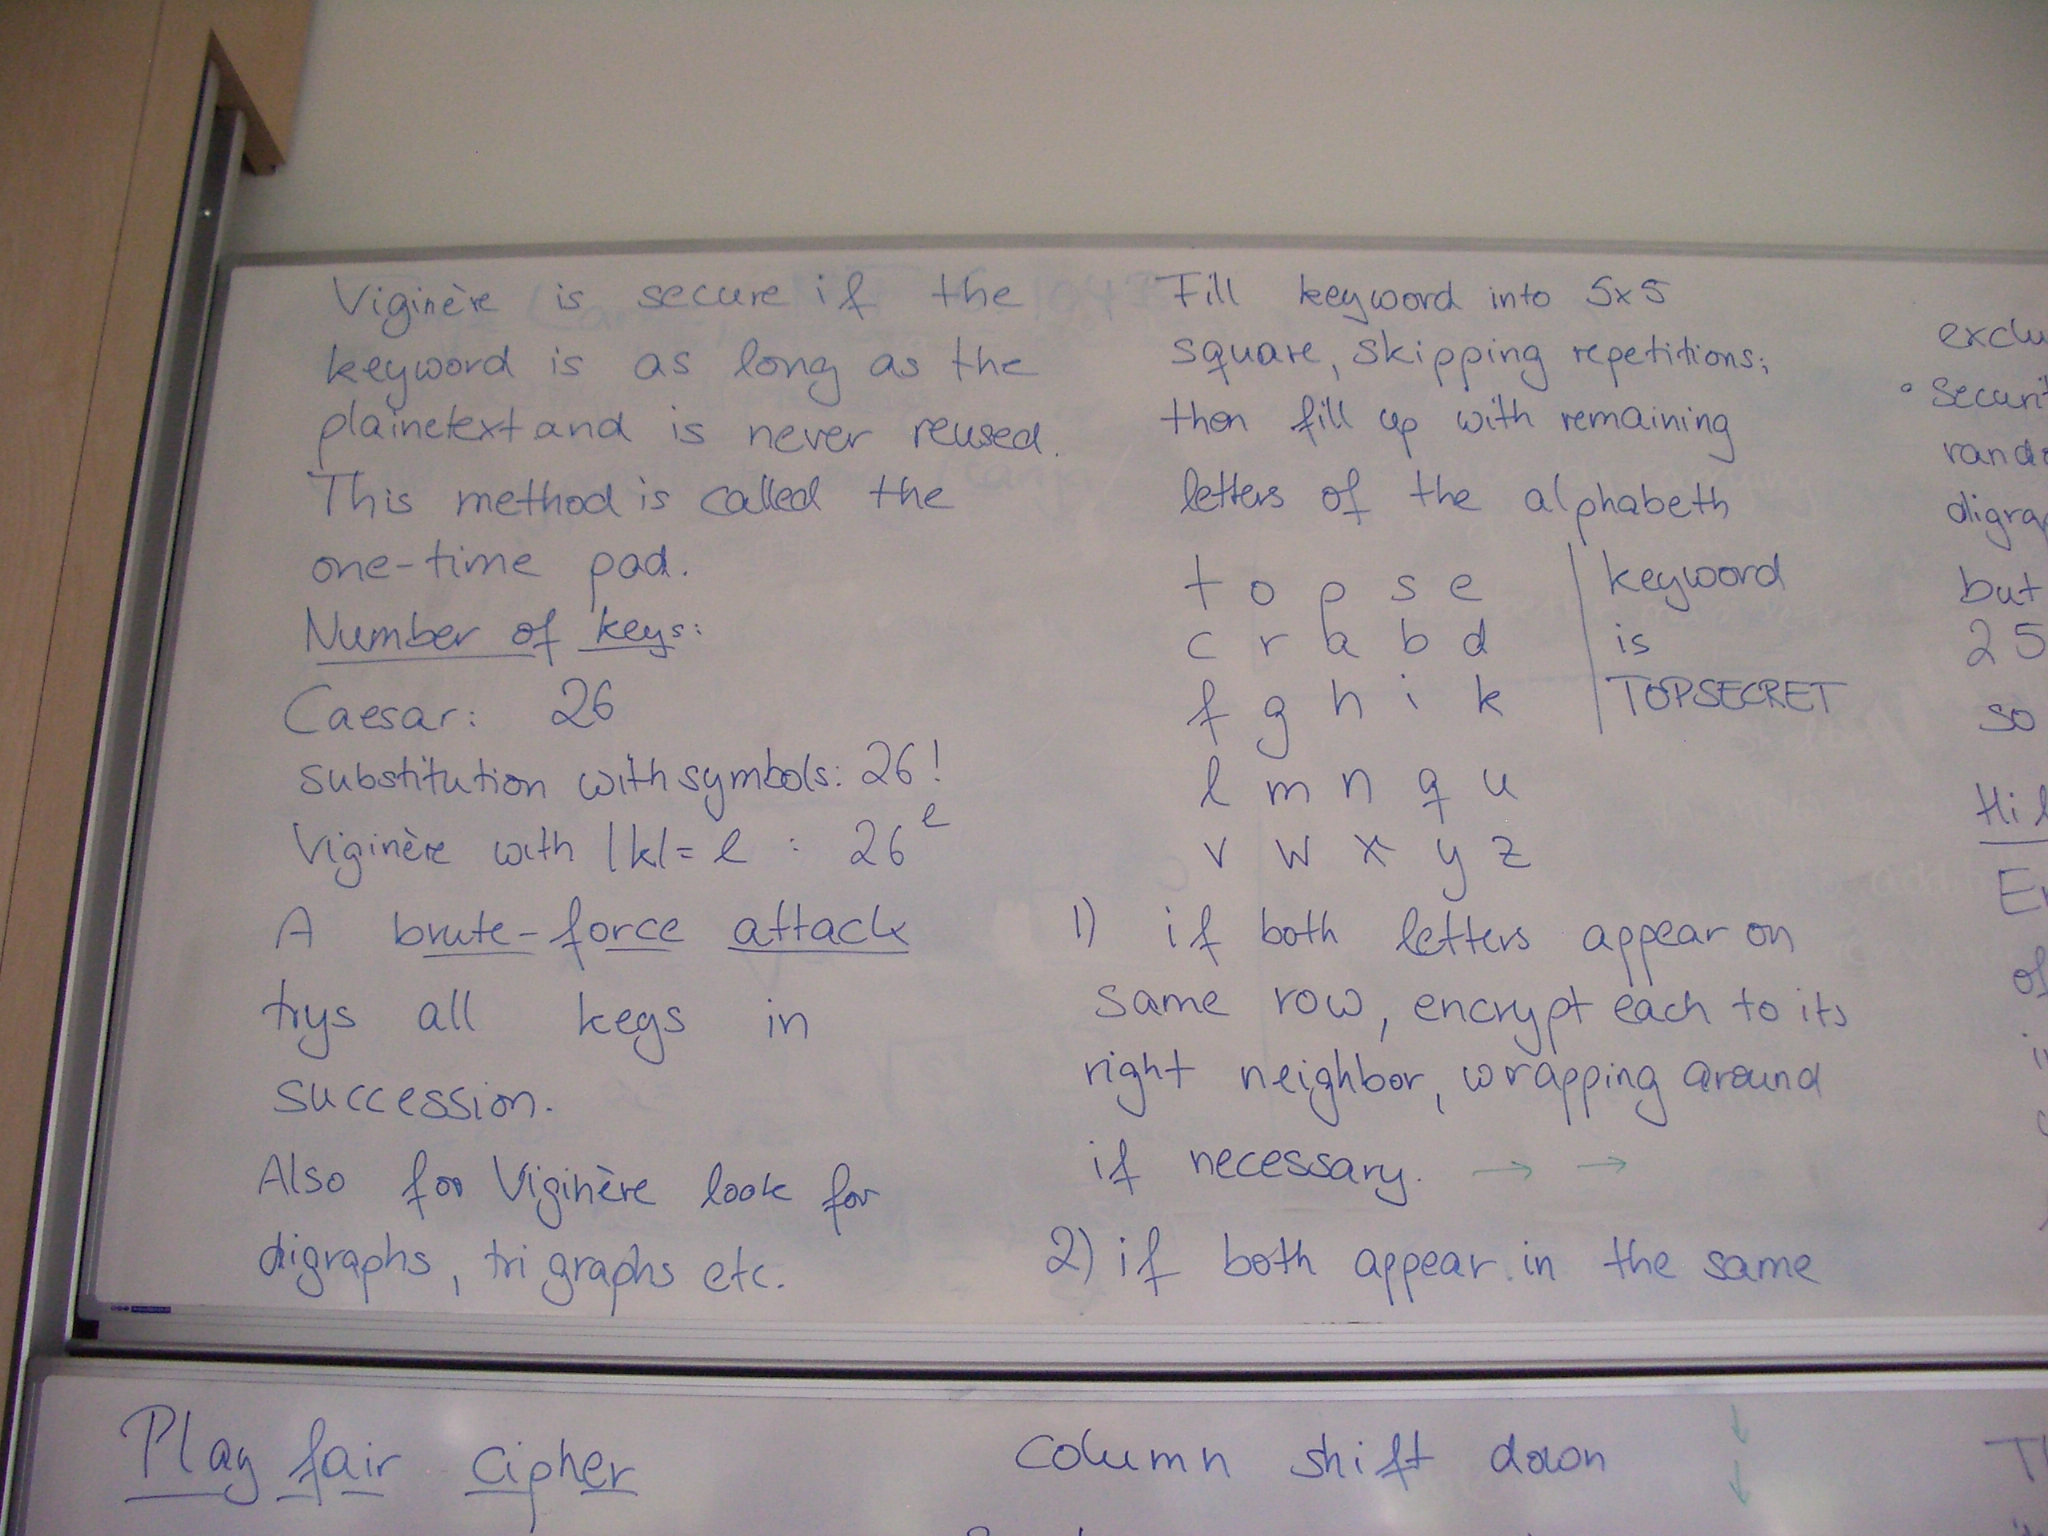 Viginère is secure if the
keyword is as long as the
plainetext and is never reused.
This method is called the
one-time pad.
Number of keys:
Caesar: 26
substitution with symbols: 26!
Viginère with |k|= l : 26^l
A brute-force attack
trys all kegs in
succession.
Also for Viginère look for
digraphs, trigraphs etc.
Play fair cipher
Fill keyword into 5x5
square, skipping repetitions;
then fill up with remaining
letters of the alphabeth
t o p s e | keyword
c r a b d | is
f g h i k | TOPSECRET
l m n q u
v w x y z
1) if both letters appear on
same row, encrypt each to its
right neighbor, wrapping around
if necessary. → →
2) if both appear in the same
column shift down ↓ ↓
exclu
• Securit
rando
digrap
but
25
so
Hil
En
of